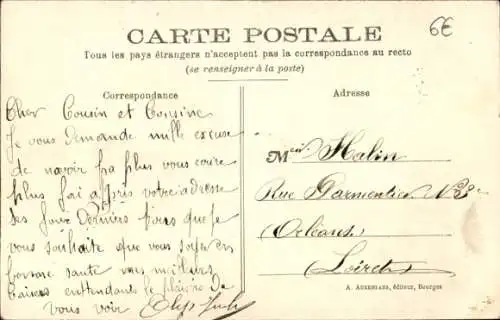 CARTE POSTALE
6€
Tous les pays étrangers n'acceptent pas la correspondance au recto
(se renseigner à la poste)
Correspondance
Adresse
Cher Cousin et Cousine
Je vous demande mille excuse
de navoir pa plus vous
plus j'ai appris votre adresse
ses jour derniers que je
vous souhaite que vous soyez en
bonne sante mes meilleurs
baisers en attendent le plaisire de
vous voir
M Halin
Rue Parmentier No
(Orléans)
(Loiret)
A. Auxenfans, éditeur, Bourges